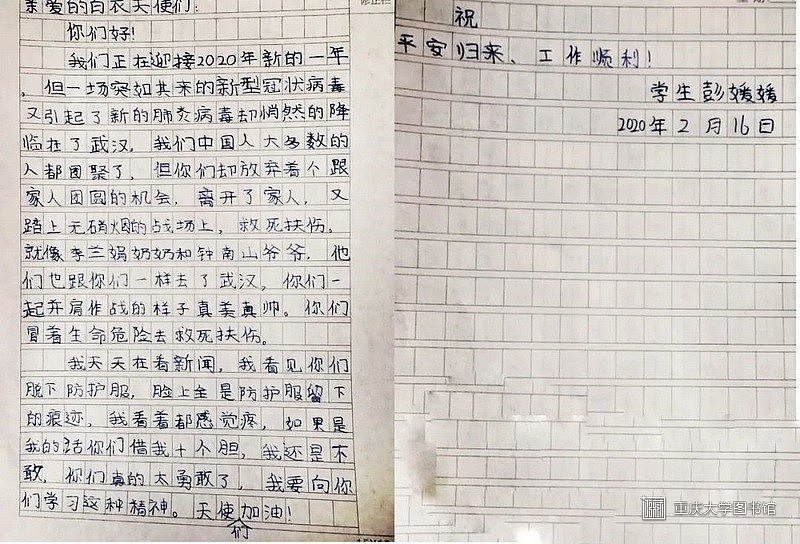 亲爱的白衣天使们:
你们好!
我们正在迎接2020年新的一年
,但一场突如其来的新型冠状病毒
又引起了新的肺炎病毒却悄然的降
临在了武汉,我们中国人大多数的
人都团聚了,但你们却放弃着个跟
家人团圆的机会,离开了家人,又
踏上无硝烟的战场上,救死扶伤。
就像李兰娟奶奶和钟南山爷爷,他
们也跟你们一样去了武汉,你们一
起并肩作战的样子真美真帅。你们
冒着生命危险去救死扶伤。
我天天在看新闻,我看见你们
脱下防护服,脸上全是防护服留下
的痕迹,我看着都感觉疼,如果是
我的话你们借我十个胆,我还是不
敢,你们真的太勇敢了,我要向你
们学习这种精神。天使们加油!
祝
平安归来、工作顺利!
学生彭媛媛
2020年2月16日
重庆大学图书馆